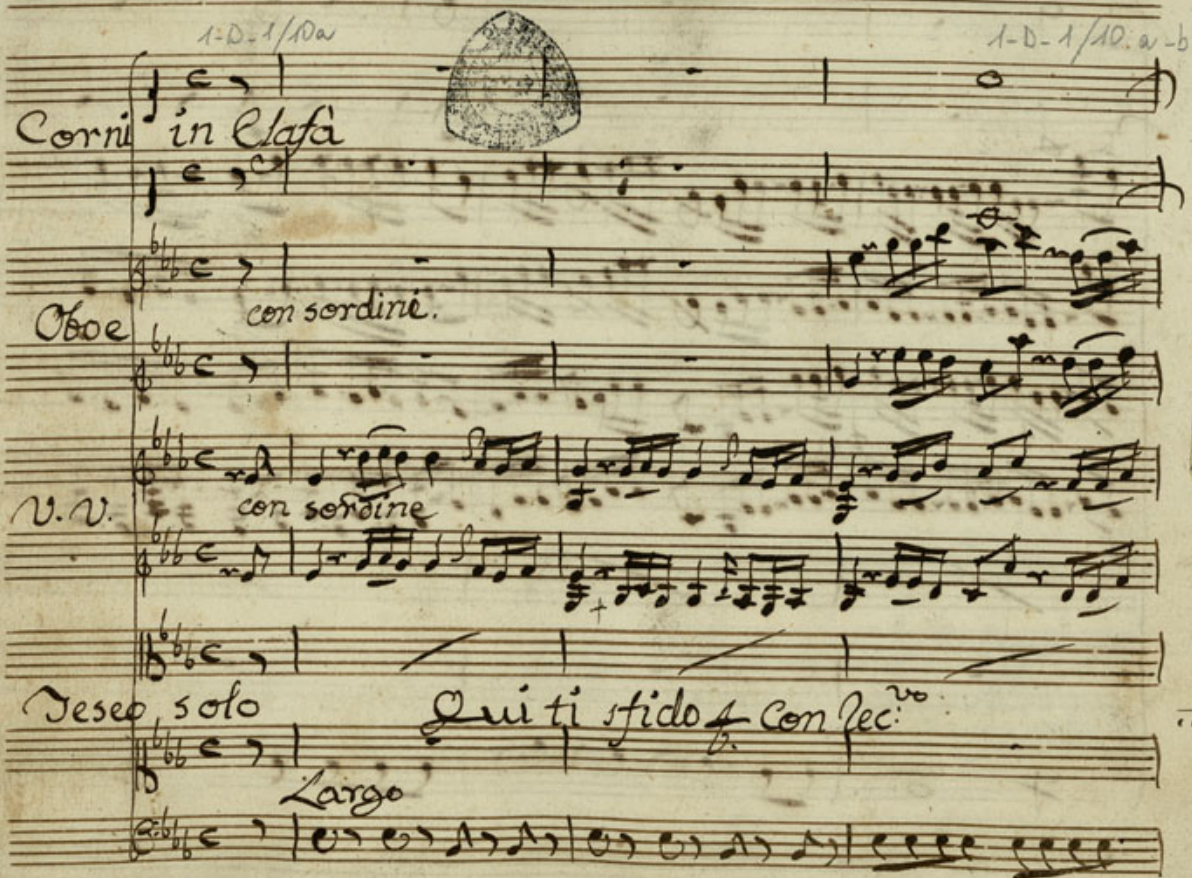 1-D-1/10a 1-D-1/10.a-b
Corni in Elafà
Oboe con sordini.
V. V. con sordine
Teseo solo Qui ti sfido con Rec:vo
Largo